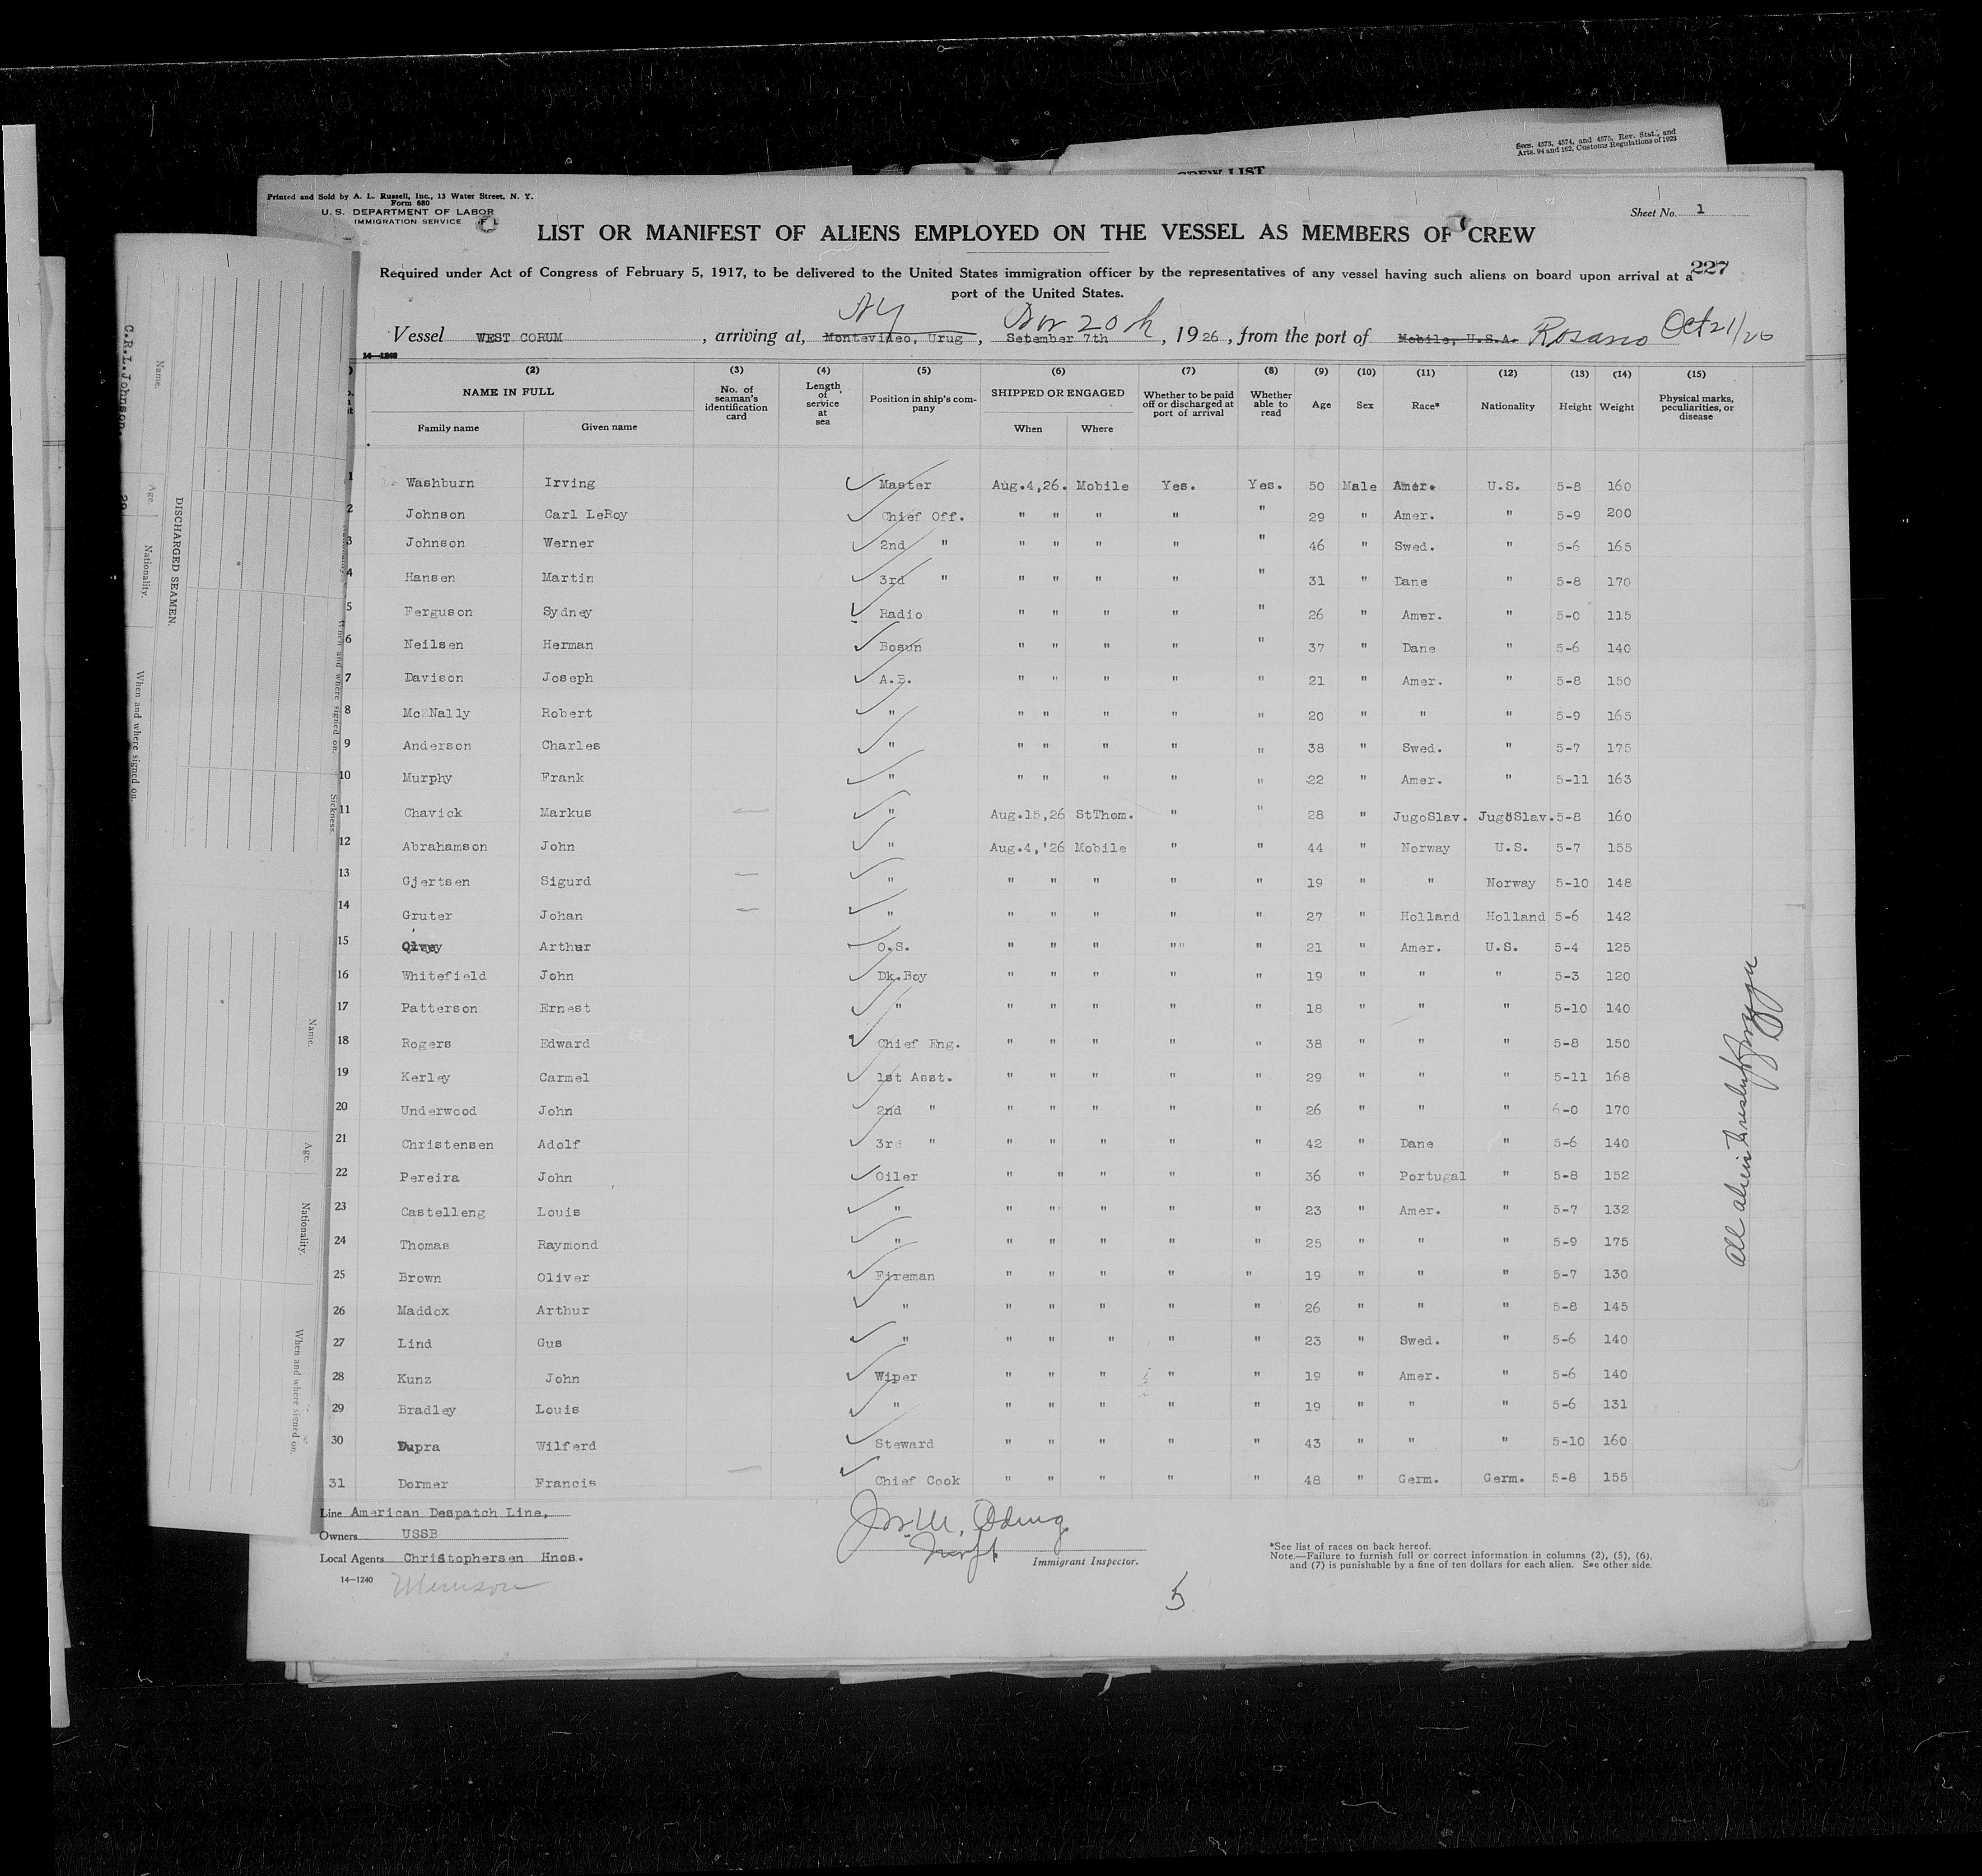 Secs. 4573, 4574, and 4575, Rev. Stat., and
Arts. 94 and 162, Customs Regulations of 1923
CREW LIST
Printed and Sold by A. L. Russell, Inc., 13 Water Street, N. Y.
Form 680
U. S. DEPARTMENT OF LABOR
IMMIGRATION SERVICE
Sheet No. 1
LIST OR MANIFEST OF ALIENS EMPLOYED ON THE VESSEL AS MEMBERS OF CREW
Required under Act of Congress of February 5, 1917, to be delivered to the United States immigration officer by the representatives of any vessel having such aliens on board upon arrival at a
227
port of the United States.
NY Nov 20th
Vessel WEST CORUM, arriving at, Montevideo, Urug, Setember 7th, 1926, from the port of Mobile, U.S.A. Rosario Oct 21/26
14—1240
(2) (3) (4) (5) (6) (7) (8) (9) (10) (11) (12) (13) (14) (15)
NAME IN FULL No. of seaman's identification card Length of service at sea Position in ship's company SHIPPED OR ENGAGED Whether to be paid off or discharged at port of arrival Whether able to read Age Sex Race* Nationality Height Weight Physical marks, peculiarities, or disease
Family name Given name When Where
1 Washburn Irving Master Aug.4,26. Mobile Yes. Yes. 50 Male Amer. U.S. 5-8 160
2 Johnson Carl LeRoy Chief Off. " " " " " 29 " Amer. " 5-9 200
3 Johnson Werner 2nd " " " " " " 46 " Swed. " 5-6 165
4 Hansen Martin 3rd " " " " " " 31 " Dane " 5-8 170
5 Ferguson Sydney Radio " " " " " 26 " Amer. " 5-0 115
6 Neilsen Herman Bosun " " " " " 37 " Dane " 5-6 140
7 Davison Joseph A.B. " " " " " 21 " Amer. " 5-8 150
8 McNally Robert " " " " " " 20 " " " 5-9 165
9 Anderson Charles " " " " " " 38 " Swed. " 5-7 175
10 Murphy Frank " " " " " " 22 " Amer. " 5-11 163
11 Chavick Markus " Aug.15,26 StThom. " " 28 " JugoSlav. JugoSlav. 5-8 160
12 Abrahamson John " Aug.4,'26 Mobile " " 44 " Norway U.S. 5-7 155
13 Gjertsen Sigurd " " " " " " 19 " " Norway 5-10 148
14 Gruter Johan " " " " " " 27 " Holland Holland 5-6 142
15 Arthur O.S. " " " "" " 21 " Amer. U.S. 5-4 125
16 Whitefield John Dk.Boy " " " " " 19 " " " 5-3 120
17 Patterson Ernest " " " " " " 18 " " " 5-10 140
18 Rogers Edward Chief Eng. " " " " " 38 " " " 5-8 150
19 Kerley Carmel 1st Asst. " " " " " 29 " " " 5-11 168
20 Underwood John 2nd " " " " " " 26 " " " 6-0 170
21 Christensen Adolf 3rd " " " " " " 42 " Dane " 5-6 140
22 Pereira John Oiler " " " " " 36 " Portugal " 5-8 152
23 Castelleng Louis " " " " " " 23 " Amer. " 5-7 132
24 Thomas Raymond " " " " " " 25 " " " 5-9 175
25 Brown Oliver Fireman " " " " " 19 " " " 5-7 130
26 Maddox Arthur " " " " " " 26 " " " 5-8 145
27 Lind Gus " " " " " " 23 " Swed. " 5-6 140
28 Kunz John Wiper " " " " " 19 " Amer. " 5-6 140
29 Bradley Louis " " " " " " 19 " " " 5-6 131
30 Dupra Wilferd Steward " " " " " 43 " " " 5-10 160
31 Dormer Francis Chief Cook " " " " " 48 " Germ. Germ. 5-8 155
Line American Despatch Line,
Owners USSB
Local Agents Christophersen Hnos.
14—1240
Immigrant Inspector.
*See list of races on back hereof.
Note.—Failure to furnish full or correct information in columns (2), (5), (6),
and (7) is punishable by a fine of ten dollars for each alien. See other side.
5
All aliens
C.R.L.Johnson.
Name.
Age.
Nationality.
When and where signed on.
DISCHARGED SEAMEN.
When and where signed on.
Sickness.
Name.
Age.
Nationality.
When and where signed on.